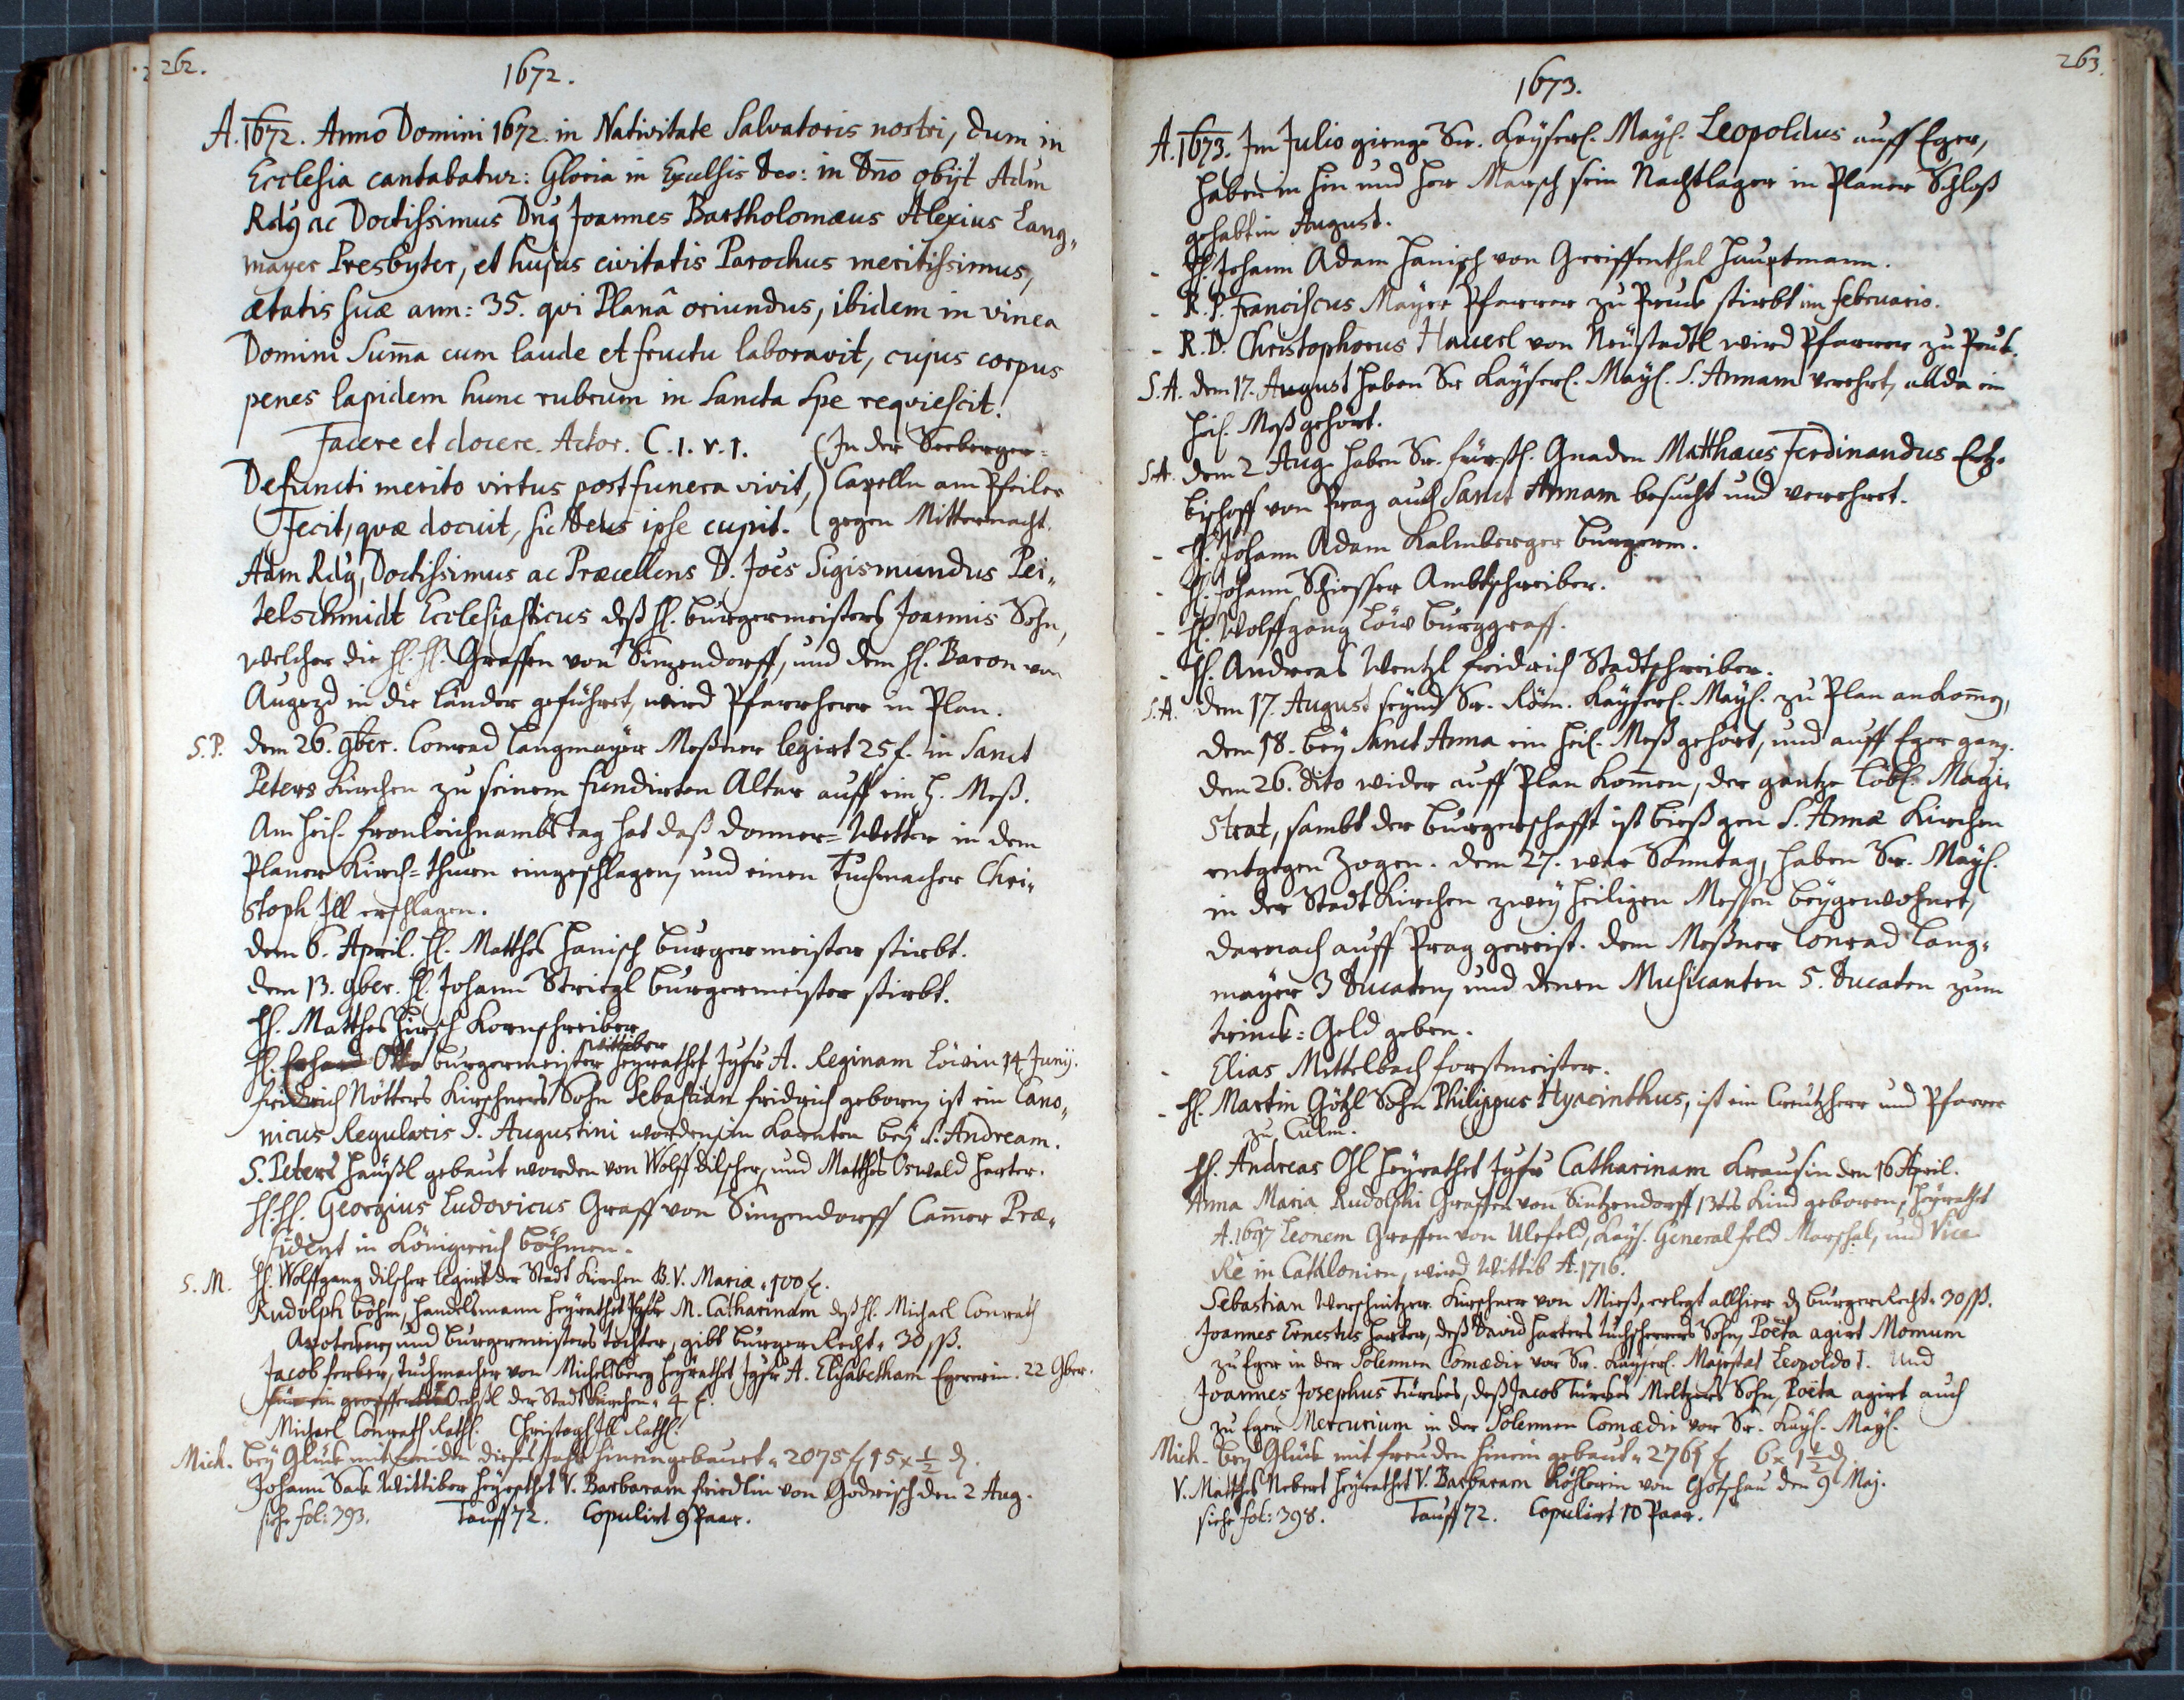 262.
1672.
A. 1672. Anno Domini 1672. in Nativitate Salvatoris nostri, dum in
Ecclesia cantabatur: Gloria in Excelsis Deo: in Dno obijt Adm
Rdg ac Doctissimus Dng Joannes Bartholomæus Alexius Lang„
mayer Presbyter, et hujus civitatis Parochus meritissimus,
ætatis suæ ann: 35. qvi Planâ oriundus, ibidem in vinea
Domini Suma cum laude et fructu laboravit, cujus corpus
penes lapidem hunc rubrum in Sancta Spe reqviescit.
Facere et docere. Actor. C. 1. v. 1. (In der Seeberger=
Defuncti merito virtus post funera vivit,) Capelln am Pfeiler
Fecit, qvæ docuit, sic Deus ipse cupit. (gegen Mitternacht.
Adm Rdg, Doctissimus ac Præcellens D. Joes Sigismundus Pei„
telschmidt Ecclesiasticus deß H. burgermeisters Joannis Sohn,
welcher die H. H. Graffen von Sinzendorff, und dem H. Baron von
Augezd in die länder geführet, wird Pfarrherr in Plan.
S. P. dem 26. 9ber. Conrad Langmayer Meßner legirt 25 f. in Sanct
Peters Kirchen zu seinem fundirten Altar auff ein H. Meß.
Am heil. fronleichnambs tag hat daß donner=Wetter in dem
Planer Kirch=thurn eingeschlagen, und einen Tuchmacher Chri„
stoph Ill erschlagen.
dem 6. April. H. Matthes Hanisch burgermeister stirbt.
dem 13. 9ber. H. Johann Striezl burgermeister stirbt.
H. Matthes Hirsch Kornschreiber
wittiber
H. Erhard Otto burgermeister heyrathet Jgfr A. Reginam Löwin 14 Junij.
fridrich Nötters Kirschners Sohn Sebastian fridrich geborn, ist ein Cano„
nicus Regularis S. Augustini worden, in Karnten bey S. Andream.
S. Peters Häußl gebaut worden von Wolff dilscher, und Matthes Oswald Harter.
H. H. Georgius Ludovicus Graff von Sinzendorff Camer Præ„
sident in Königreich böhmen.
S. M. H. Wolffgang dilscher legirt der Stadt Kirchen B. V. Mariæ „ 100 f.
Rudolph böhm, Handelsmann heyrathet Jgfr M. Catharinam deß H. Michael Conrath
Apotecker, und burgermeisters tochter, gibt burger Recht „ 30 ß.
Jacob ferber, tuchmacher von Michelsberg heyrathet Jgfr A. Elisabetham Egererin. 22 9ber.
für ein Oechßl der Stadt Kirchen „ 4 f.
Michael Conrath Rath. Christoph Ill Rath.
Mich. bey Glück mit freuden dieses Jahr hinein gebauet „ 2075 f 15 x ½ d.
Johann Sack Wittiber heyrathet V. Barbaram friedlin von Godrisch den 2 Aug.
siehe fol: 393. Tauff 72. Copulirt 9 Paar.
263.
1673.
A. 1673. Im Julio gienge Sr. Keyserl. Mayl. Leopoldus auff Eger,
haben in hin und her Marsch sein Nachtlager in Planer Schloß
gehabt in August.
- H. Johann Adam Hanisch von Greiffenthal Hauptmann.
- R. P. Franciscus Mayer Pfarrer zu Pruck stirbt im februario.
- R. D. Christophorus Hauerl von Neüstadtl wird Pfarrer zu Pruk.
S. A. dem 17. August haben Sr Kayserl. Mayl. S. Annam verehrt, allda ein
heil. Meß gehört.
S. A. dem 2 Aug. haben Sr. fürstl. Gnaden Matthæus Ferdinandus Ertz=
bischoff von Prag auch Sanct Annam besucht und verehret.
- H. Johann Adam Kalmberger burgerm.
- H. Johann Schiesser Ambtschreiber.
- H. Wolffgang Löw burggraff.
- H. Andreas Wentzl fridrich Stadtschreiber.
S. A. dem 17. August seynd Sr. Röm. Kayserl. Mayl. zu Plan ankomen,
dem 18. bey Sanct Anna ein heil. Meß gehört, und auff Eger gang.
dem 26. dito wider auff Plan komen, der gantze löbl. Magi„
strat, sambt der burgerschafft ist bieß gen S. Annæ Kirchen
entgegen Zogen. dem 27. war Sonntag, haben Sr. Mayl.
in der Stadt Kirchen zwey heiligen Messen beygewohnet,
darnach auff Prag gereist. dem Meßner Conrad Lang„
mayer 3 Ducaten, und denen Musicanten 5. Ducaten zum
trinck=Geld geben.
- Elias Mittelbach forstmeister.
- H. Martin Götzl Sohn Philippus Hyacinthus, ist ein Creützherr und Pfarrer
zu Culm.
H. Andreas Ohl heyrathet Jgfr Catharinam Krausin den 16 April.
Anna Maria Rudolphi Graffen von Sintzendorff 13tes Kind geboren, heyrathet
A. 1697 Leonem Graffen von Ulefeld, Kays. General feld Marschal, und Vice
Re in Cathlonien, wird Wittib A. 1716.
Sebastian Werschnitzer Kirschner von Mieß, erlegt allhier d burger Recht „ 30 ß.
Joannes Ernestus Harter, deß David Harters tuchscherers Sohn, Poëta agirt Momum
zu Eger in der Solennen Comædie vor Sr. Kayserl. Majestat Leopoldo I. Und
Joannes Josephus Türckes, deß Jacob Türckes Meltzers Sohn, Poëta agirt auch
zu Eger Mercurium in der Solennen Comædie vor Sr. Kayl. Mayl.
Mich. bey Glück mit freuden hinein gebaut „ 2761 f 6 x 1½ d.
V. Matthes Nebert heyrathet V. Barbaram Köhlerin von Gotschau den 9 Maj.
siehe fol: 398. Tauff 72. Copulirt 10 Paar.